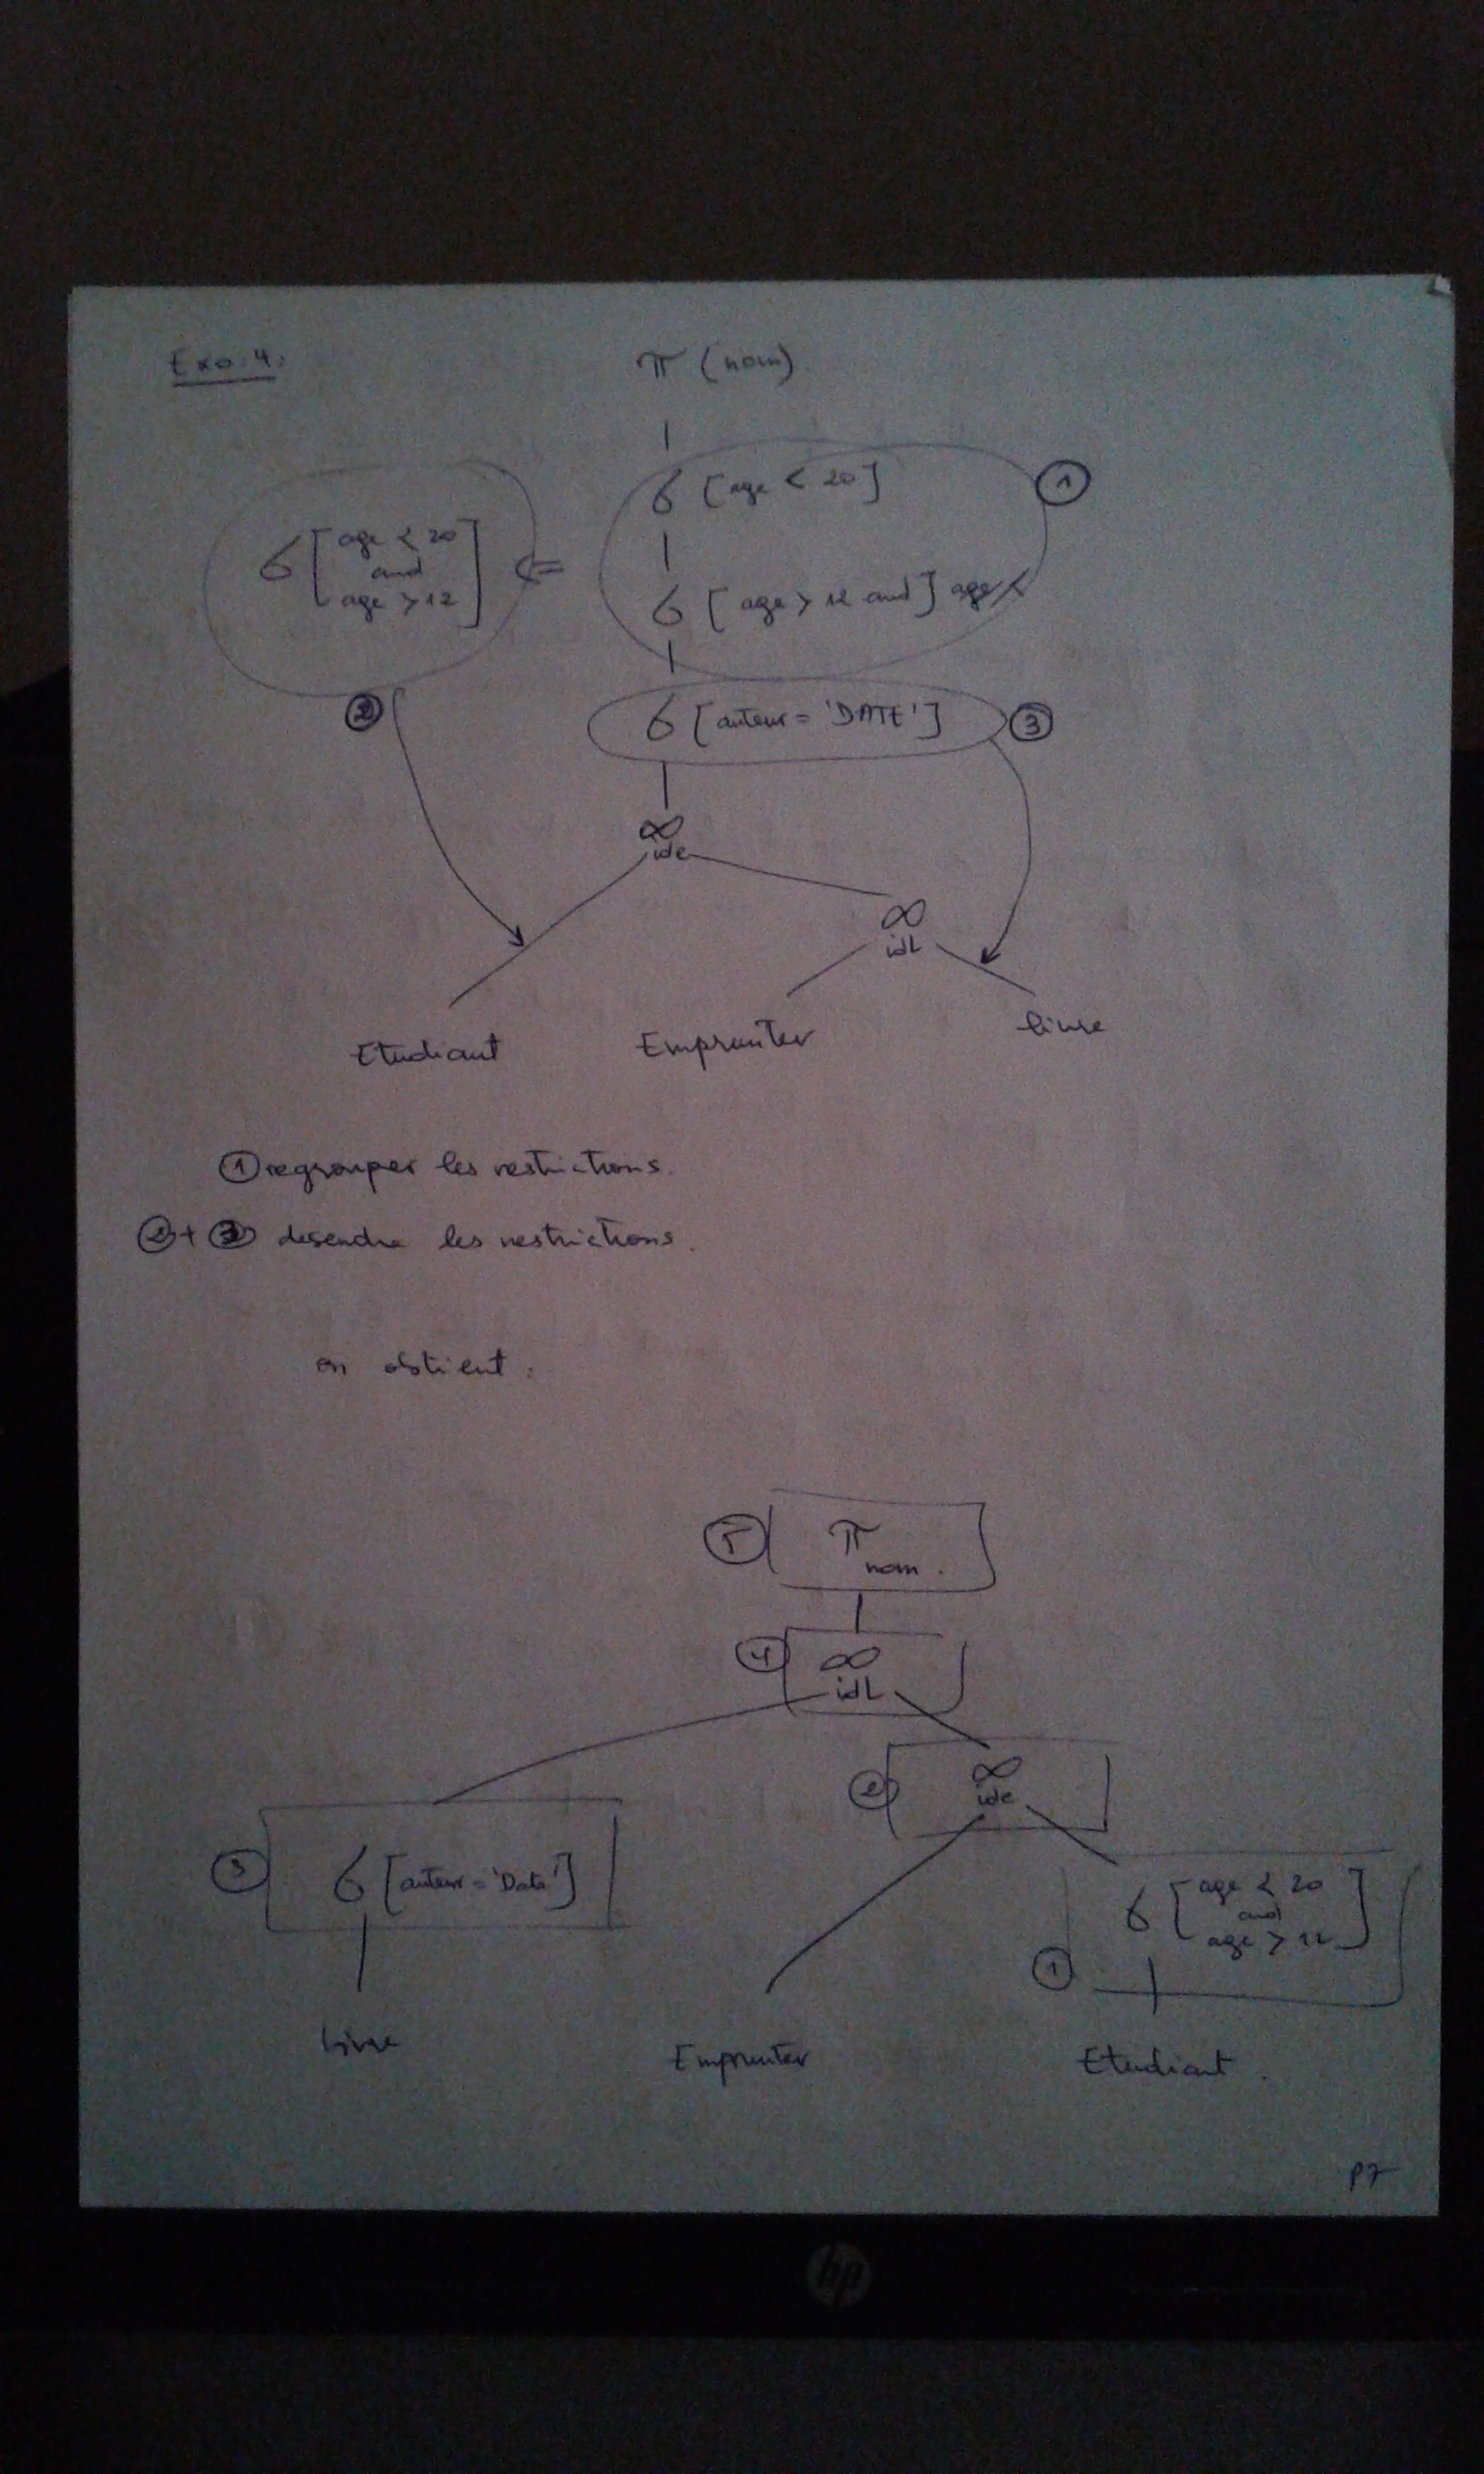 Exo:4:
π (nom)
σ [age < 20]
①
σ [age < 20 and age > 12]
⇐
σ [age > 12 and] age <
②
σ [auteur = 'DATE']
③
∞
ide
∞
idL
livre
Etudiant
Emprunter
① regrouper les restrictions.
② + ③ desendre les restrictions.
on obtient :
⑤ π nom.
④ ∞
idL
② ∞
ide
③ σ [auteur = 'Date']
① σ [age < 20 and age > 12]
livre
Emprunter
Etudiant.
P7
hp